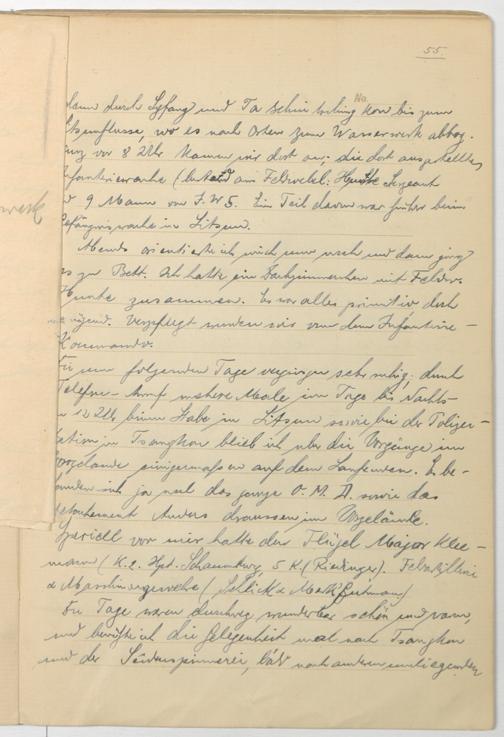 55
dann durch Syfang und Ta schui tsching kou bis zum
Litsunflusse, wo es nach Osten zum Wasserwerk abbog.
Kurz vor 8 Uhr kamen wir dort an; die dort ausgestellte
Infanteriewache ( ein Feldwebel: Sergeant
9 Mann von I.W 5. Ein Teil davon war früher beim
Gefängniswache in Litsun.
Abends orientierte ich mich nur noch und dann ging
es zu Bett. Ich hatte ein Dachzimmerchen mit Feldw.
zusammen. Es war alles primitiv doch
genügend. Verpflegt wurden wir von dem Infanterie-
Kommando.
Die nun folgenden Tage vergingen sehr ruhig; durch
Telefon-Anruf mehrere Male im Tage bis Nachts
12 Uhr beim Stabe in Litsun sowie bei der Polizei-
station in Tsangkou blieb ich über die Vorgänge im
Vorgelände einigermaßen auf dem Laufenden. Es be-
fanden sich ja und das ganze O.M.D. sowie das
Detachement Anders draussen im Vorgelände.
Speziell vor mir hatte den Flügel Major Klee-
mann (K.2. Hpt. Schaumburg, 5 K. (Riedinger). Feldartillerie
& Maschinengewehre (Schlick &
Die Tage waren durchweg wunderbar schön und warm,
und benützte ich die Gelegenheit mal nach Tsangkou
und der Seidenspinnerei, bald nach anderen umliegenden